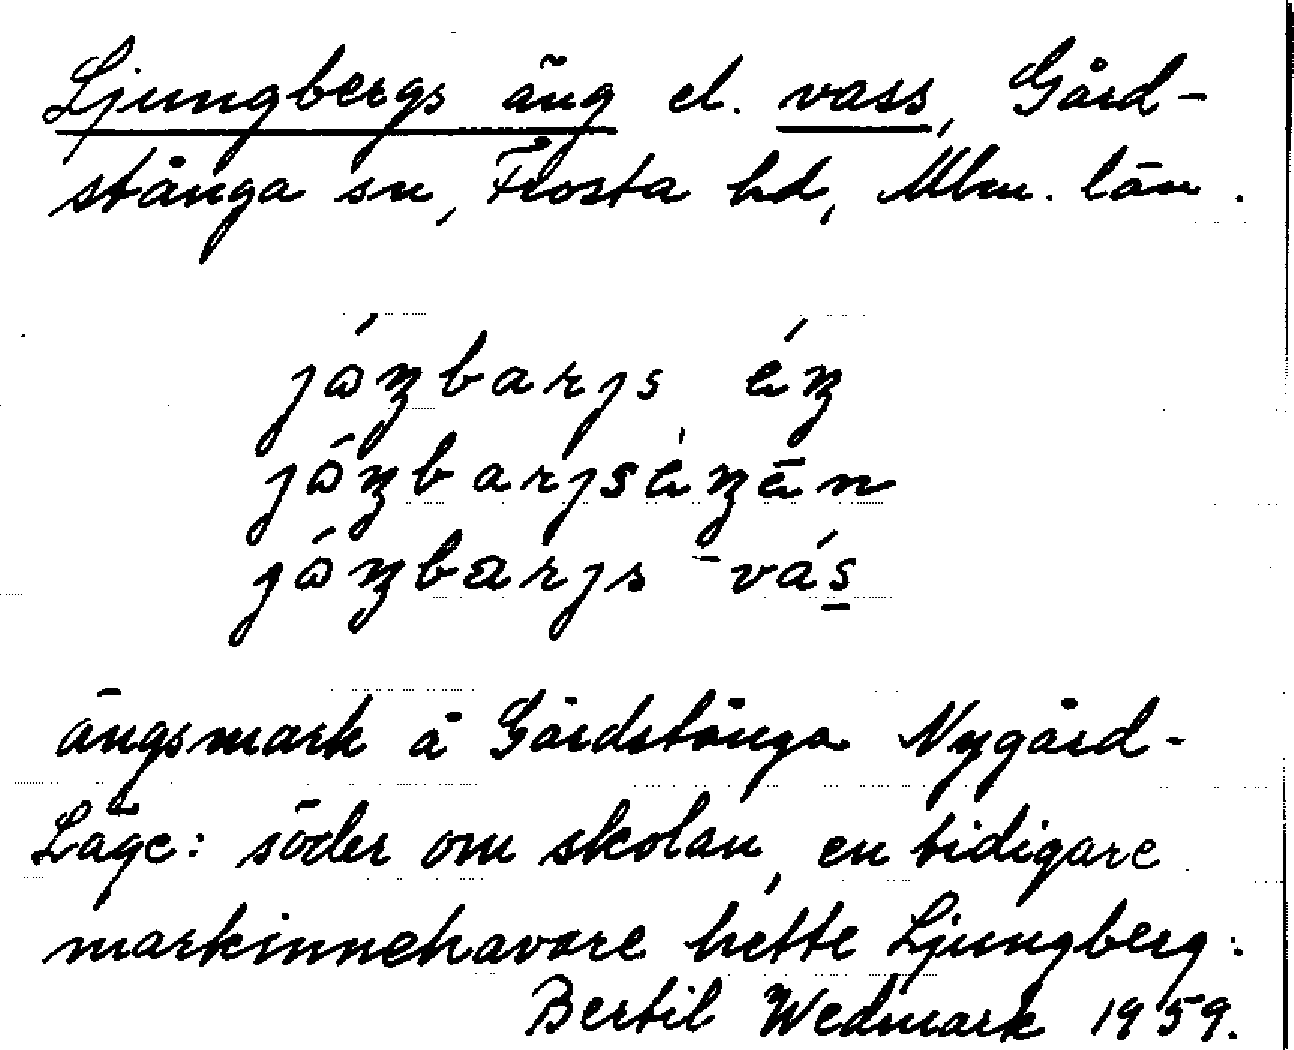 Ljungbergs äng el. vass, Gård-
stånga sn, Frosta hd, Mlm. län.
ängsmark å Gårdstånga Nygård-
Läge: söder om skolan, en tidigare
markinnehavare hette Ljungberg.
Bertil Wedmark 1959.